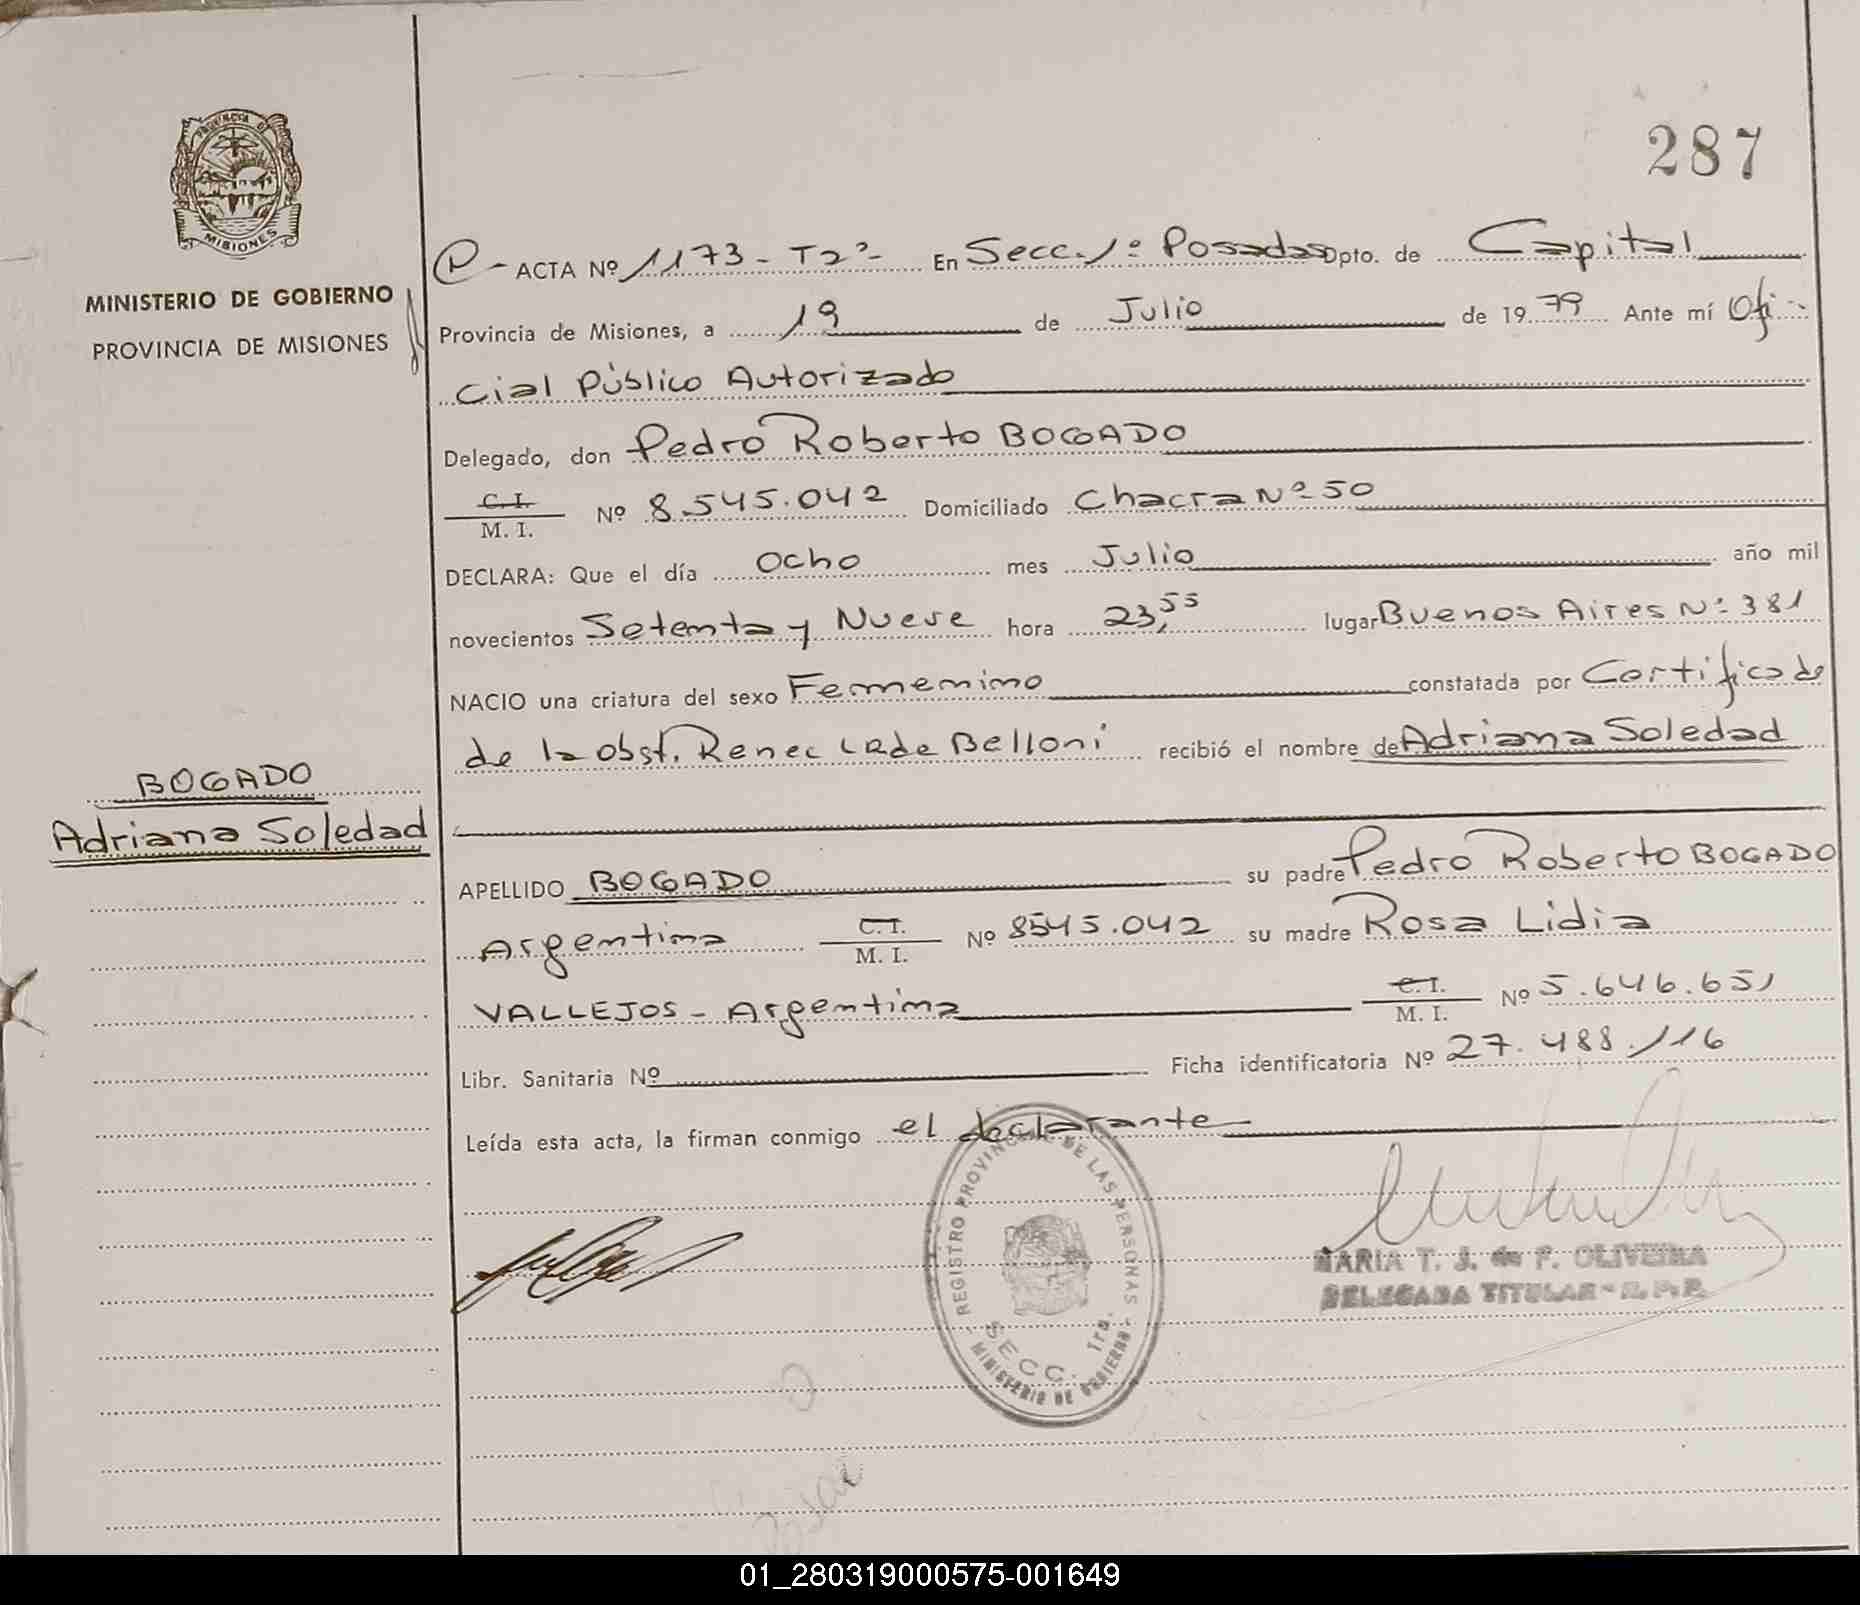 PROVINCIA DE
MISIONES
MINISTERIO DE GOBIERNO
PROVINCIA DE MISIONES
287
ACTA Nº 1173 - T2º - En Secc. 1º Posadas Dpto. de Capital
Provincia de Misiones, a 19 de Julio de 1979 Ante mí Ofi-
cial Público Autorizado
Delegado, don Pedro Roberto BOGADO
C. I.
M. I.
Nº 8.545.042 Domiciliado Chacra Nº 50
DECLARA: Que el día Ocho mes Julio año mil
novecientos Setenta y Nueve hora 23,55 lugar Buenos Aires Nº 381
NACIO una criatura del sexo Femenino constatada por Certificado
de la obst. Renee de Belloni recibió el nombre de Adriana Soledad
BOGADO
Adriana Soledad
APELLIDO BOGADO su padre Pedro Roberto BOGADO
Argentina C. I. M. I. Nº 8545.042 su madre Rosa Lidia
VALLEJOS - Argentina C. I. M. I. Nº 5.646.651
Libr. Sanitaria Nº Ficha identificatoria Nº 27.488.116
Leída esta acta, la firman conmigo el declarante
REGISTRO PROVINCIAL DE LAS PERSONAS
SECC. 1ra.
- MINISTERIO DE GOBIERNO -
MARIA T. J. de F. OLIVEIRA
DELEGADA TITULAR - R. P. P.
01_280319000575-001649